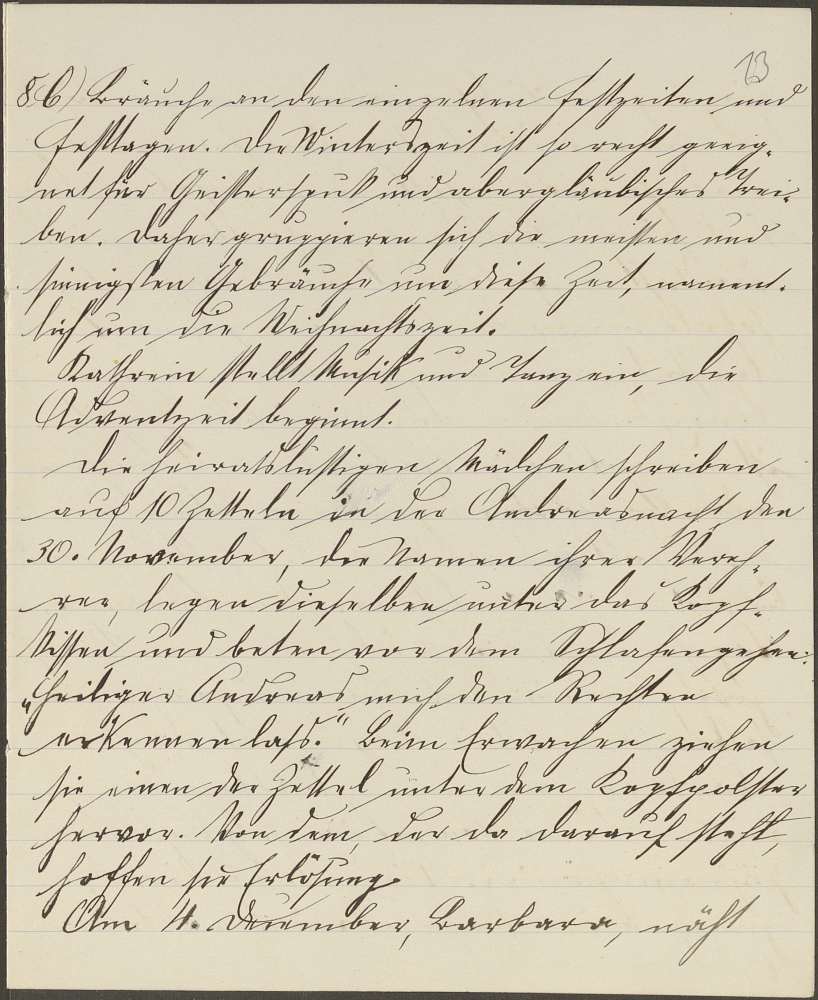 13
8 6) Bräuche an den einzelnen Festzeiten und
Festtagen. Die Winterszeit ist so recht geeig-
net für Geisterspuk und abergläubisches Trei-
ben. Daher gruppieren sich die meisten und
sinnigsten Gebräuche um diese Zeit, nament-
lich um die Weihnachtszeit.
Kathrein stellt Musik und Tanz ein, die
Adventzeit beginnt.
Die heiratslustigen Mädchen schreiben
auf 10 Zetteln in der Andreasnacht, den
30. November, die Namen ihrer Vereh-
rer, legen dieselben unter das Kopf-
kissen und beten vor dem Schlafengehen:
„Heiliger Andreas mich den Rechten
erkennen lass." Beim Erwachen ziehen
sie einen der Zettel unter dem Kopfpolster
hervor. Von dem, der da darauf steht,
hoffen sie Erlösung.
Am 4. Dezember, Barbara, näht